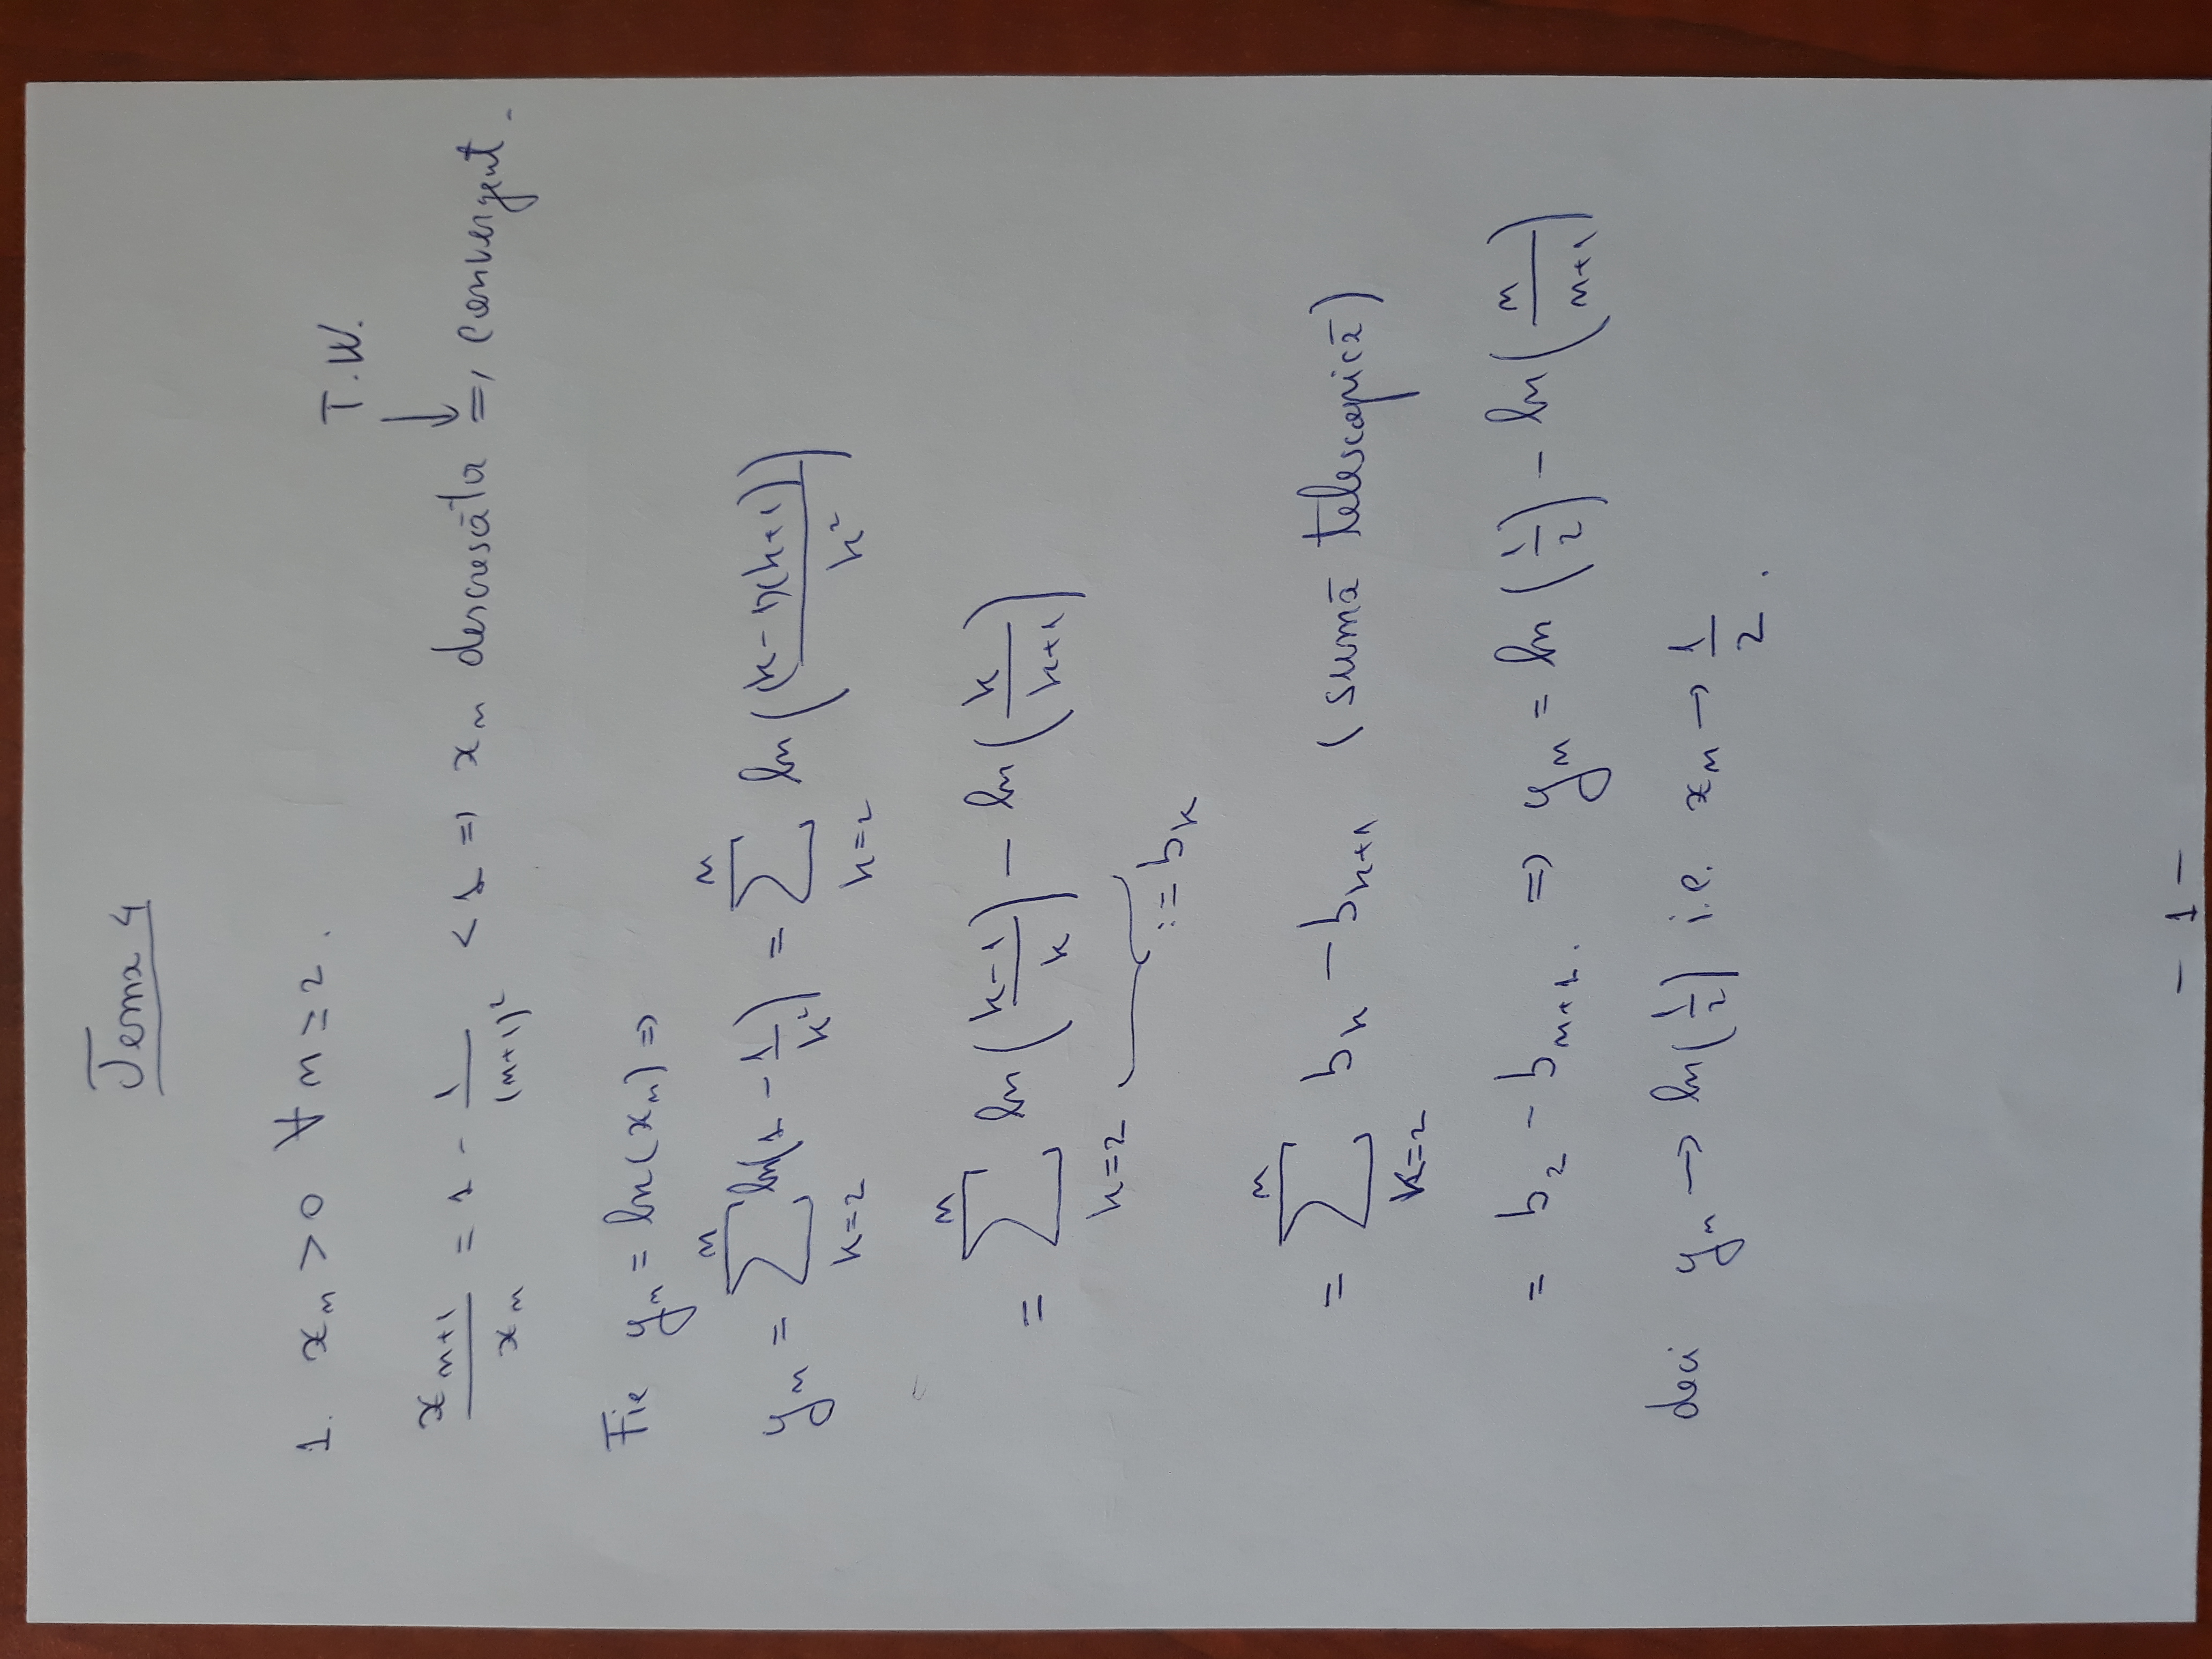 Tema 4
1. xₙ > 0 ∀ n ≥ 2.
T.W.
↓
xₙ₊₁ / xₙ = 1 - 1/(n+1)² < 1 => xₙ descrescător => convergent.
Fie yₙ = ln(xₙ) =>
yₙ = ∑_{k=2}^{n} ln(1 - 1/k²) = ∑_{k=2}^{n} ln((k-1)(k+1)/k²)
= ∑_{k=2}^{n} ln((k-1)/k) - ln(k/(k+1))
:= bₖ
= ∑_{k=2}^{n} bₖ - bₖ₊₁ (sumă telescopică)
= b₂ - bₙ₊₁. => yₙ = ln(1/2) - ln(n/(n+1))
deci yₙ → ln(1/2) i.e. xₙ → 1/2.
- 1 -